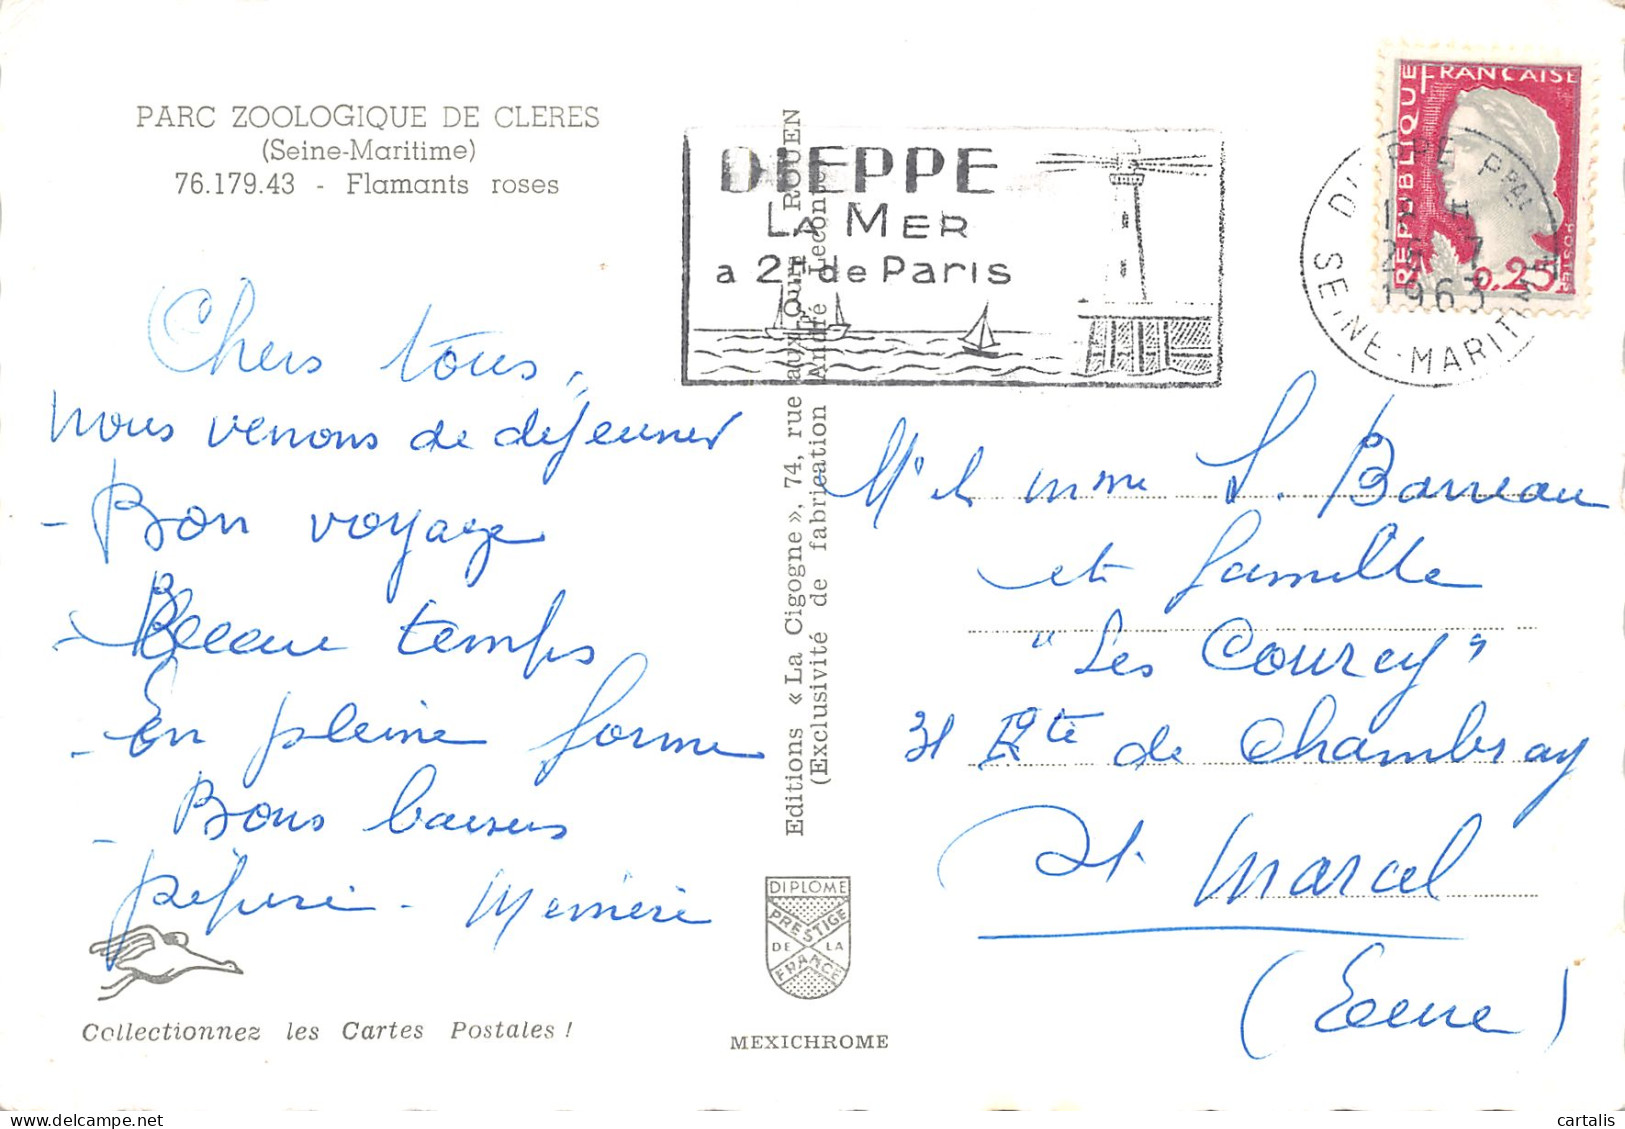 PARC ZOOLOGIQUE DE CLERES
(Seine-Maritime)
76.179.43 - Flamants roses
Chers tous,
nous venons de déjeuner
- Bon voyage
- Beau temps
- En pleine forme
- Bons baisers
pépère - Mémère
Collectionnez les Cartes Postales !
Editions « La Cigogne », 74, rue aux Ours ROUEN
(Exclusivité de fabrication André Leconte
DIPLOME
PRESTIGE
DE LA
FRANCE
MEXICHROME
DIEPPE
LA MER
a 2H de Paris
REPUBLIQUE FRANCAISE
POSTES
0,25
DIEPPE PPAL
26 - 7
1963
SEINE-MARITIME
Mr et mme S. Barreau
et famille
"Les Courcy"
31 Rte de Chambray
St Marcel
(Eure)
cartalis